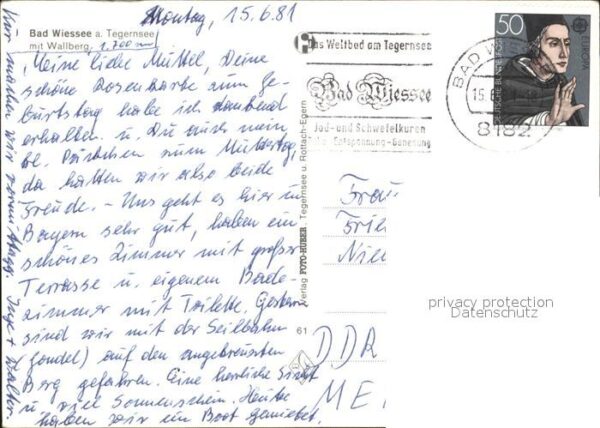 Montag, 15.6.81
Bad Wiessee a. Tegernsee
mit Wallberg, 1.700 m
Meine liebe Muttel, Deine
schöne Rosenkarte zum Ge-
burtstag habe ich dankend
erhalten. u. Du auch mein
Päckchen zum Muttertag,
da hatten wir also beide
Freude. - Uns geht es hier in
Bayern sehr gut, haben ein
schönes Zimmer mit großer
Terrasse u. eigenem Bade-
zimmer mit Toilette. Gestern
sind wir mit der Seilbahn
(Gondel) auf den angekreuzten
Berg gefahren. Eine herrliche Sicht
u. viel Sonnenschein. Heute
haben wir ein Boot gemietet.
Kur machen wir vormittags. Inge + Walter.
Verlag FOTO-HUBER, Tegernsee u. Rottach-Egern
61
Das Weltbad am Tegernsee
Bad Wiessee
Jod- und Schwefelkuren
Entspannung - Genesung
BAD W
15.
8182
50
EUROPA
DEUTSCHE BUNDESPOST
Frau
Frie
Nie
DDR
ME
privacy protection
Datenschutz